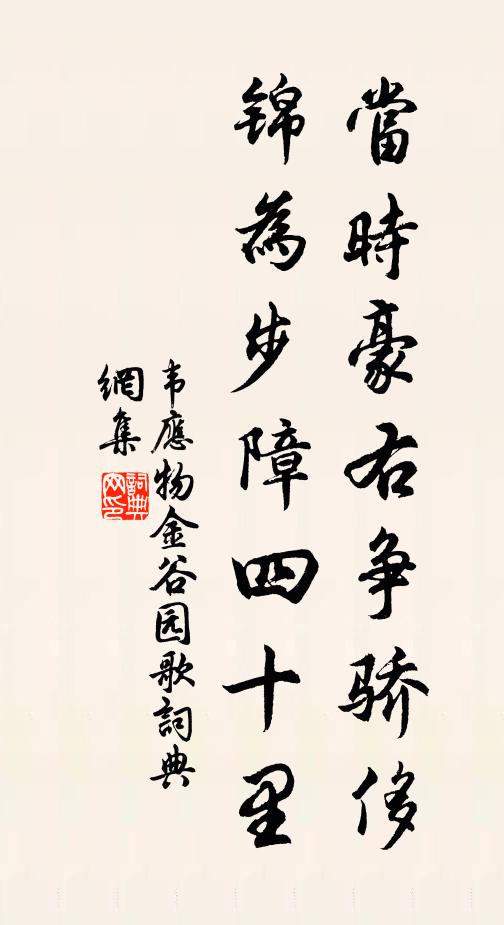 當時豪右争骄侈
锦為步障四十里
韦應物金谷园歌詞典
網集
詞典网印